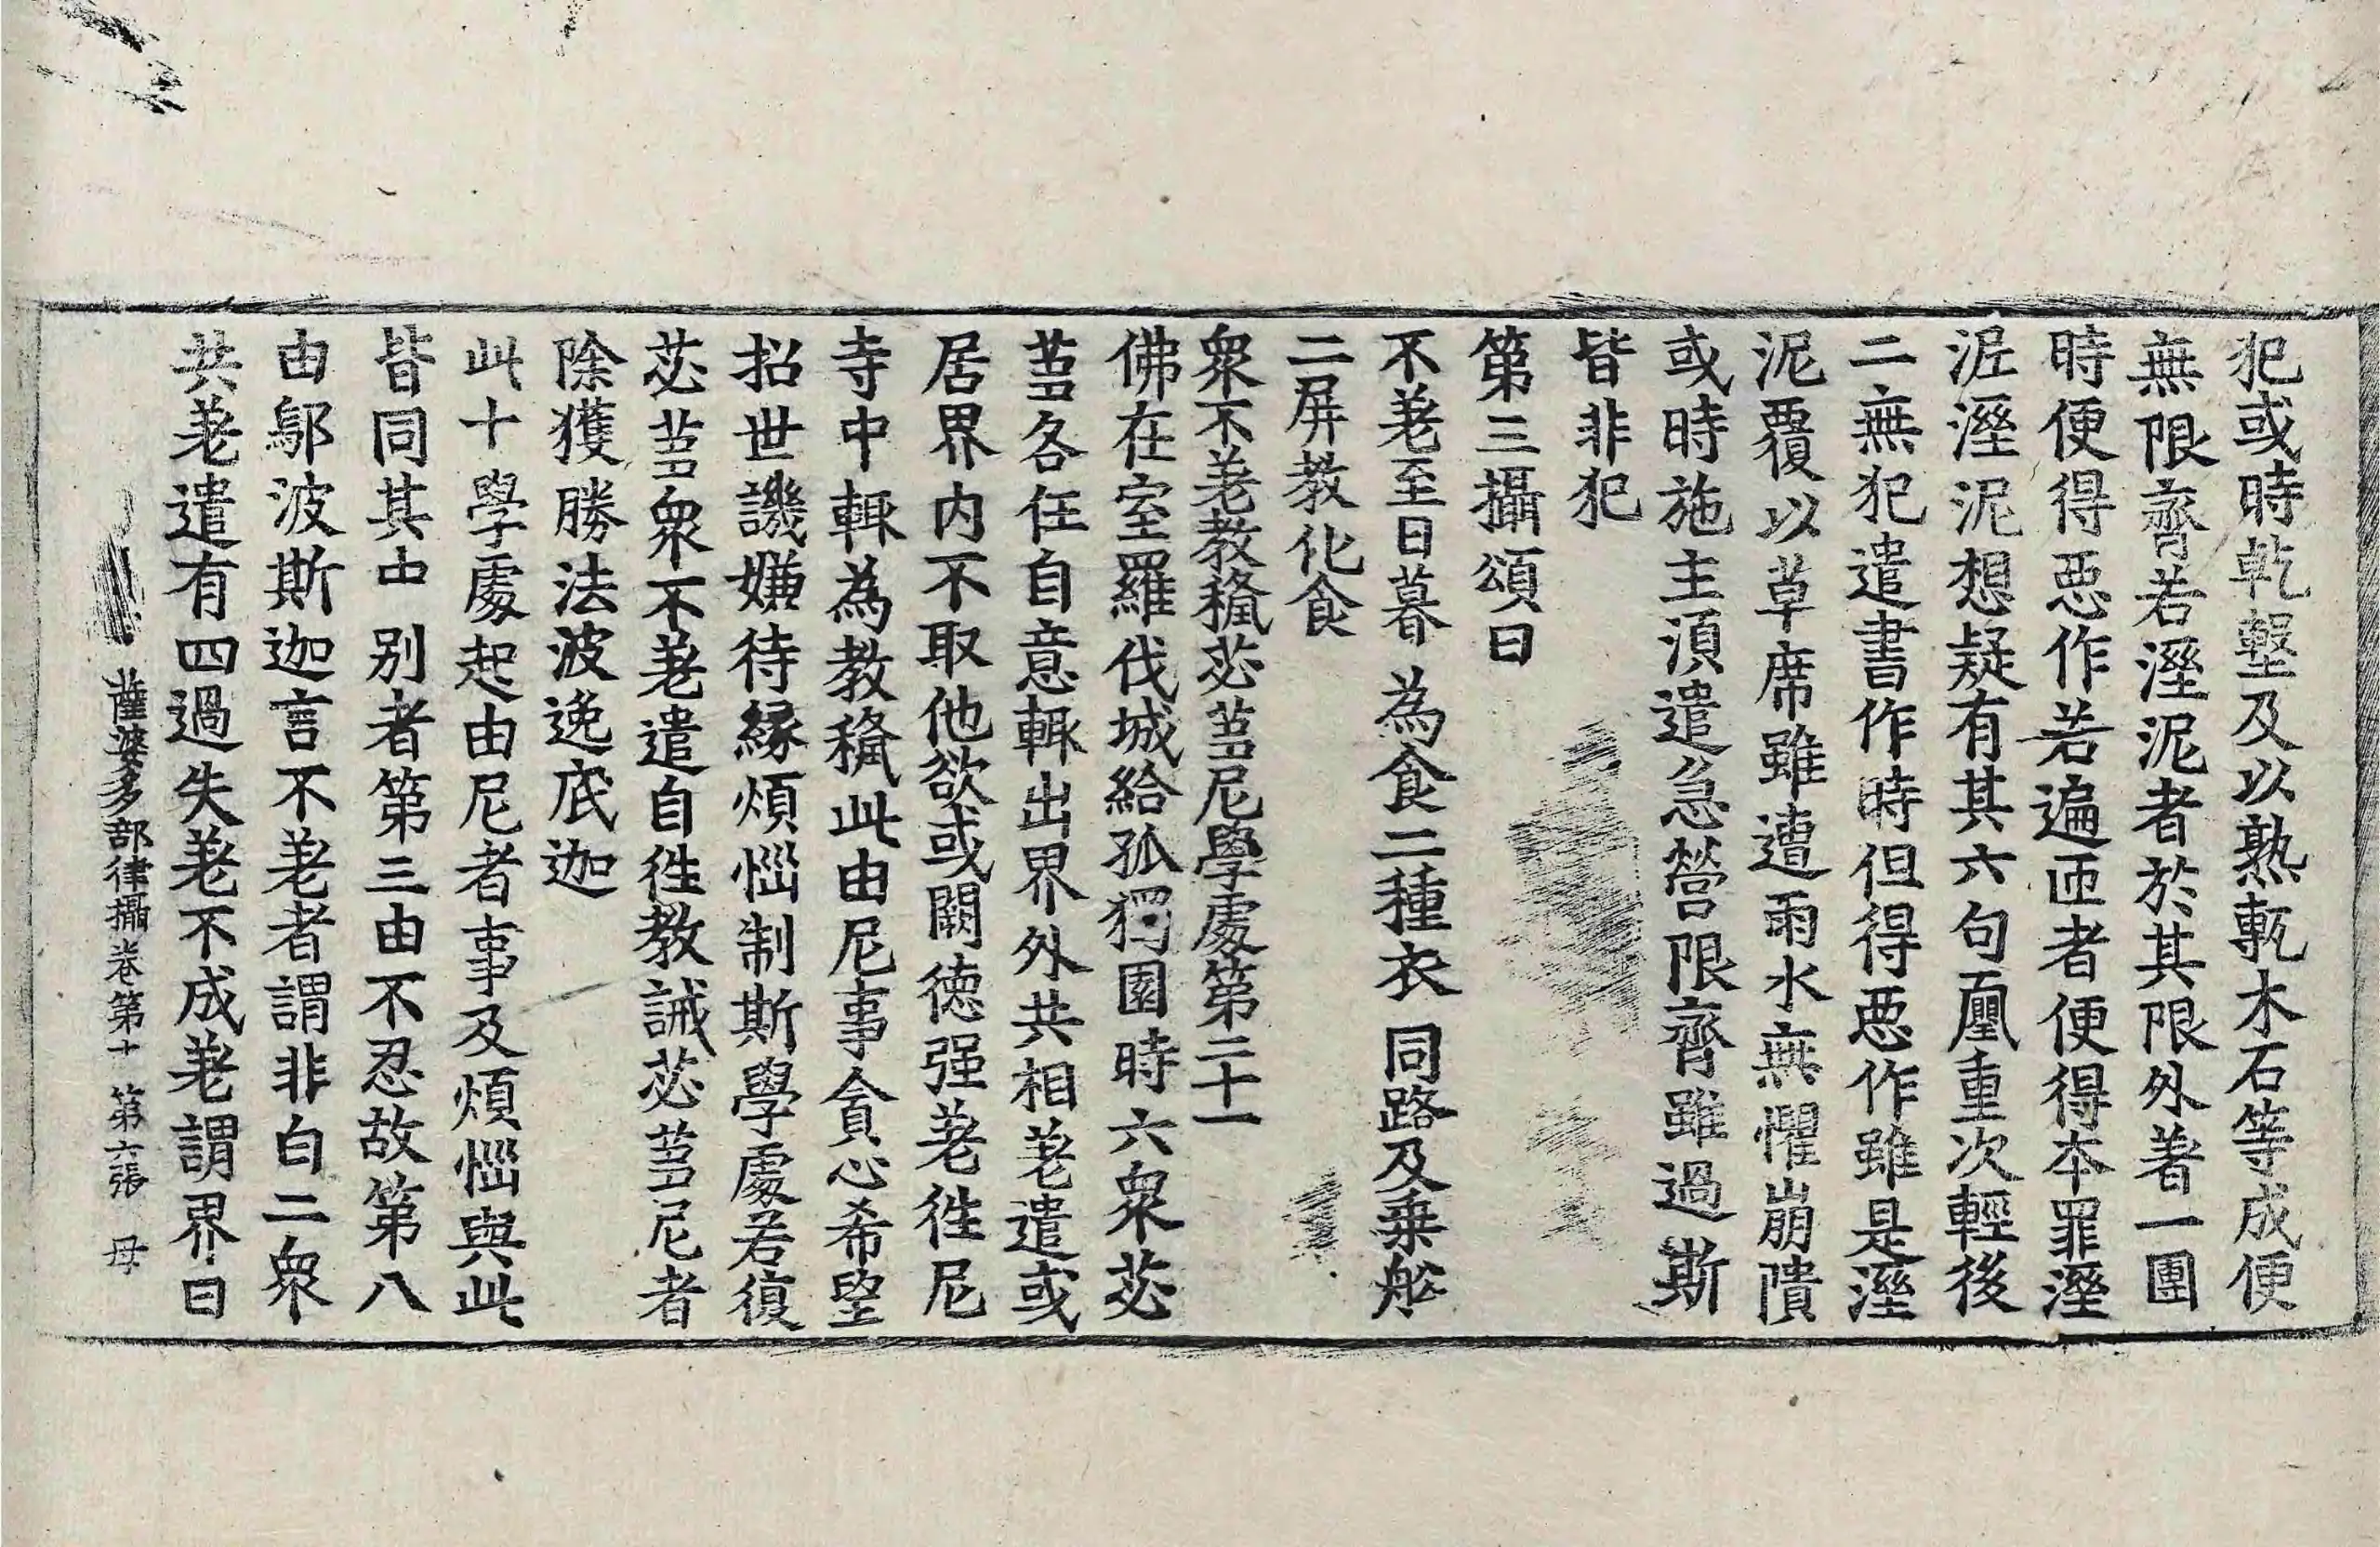 犯或時乾墼及以熟甎木石等成便
無限齊若溼泥者於其限外著一團
時便得惡作若遍匝者便得本罪溼
泥溼泥想疑有其六句四重次輕後
二無犯遣書作時但得惡作雖是溼
泥覆以草席雖遭雨水無懼崩隤
或時施主須遣急營限齊雖過斯
皆非犯
第三攝頌曰
不差至日暮　為食二種衣　同路及乗舩
二屏教化食
衆不差教授苾芻尼學處第二十一
佛在室羅伐城給孤獨園時六衆苾
芻各任自意輒出界外共相差遣或
居界内不取他欲或闕德强差徃尼
寺中輒為教授此由尼事貪心希望
招世譏嫌待緣煩惱制斯學處若復
苾芻衆不差遣自徃教誡苾芻尼者
除獲勝法波逸底迦
此十學處起由尼者事及煩惱與此
皆同其中別者第三由不忍故第八
由鄔波斯迦言不差者謂非白二衆
共差遣有四過失差不成差謂界曰
薩婆多部律攝卷第十　第六張　母